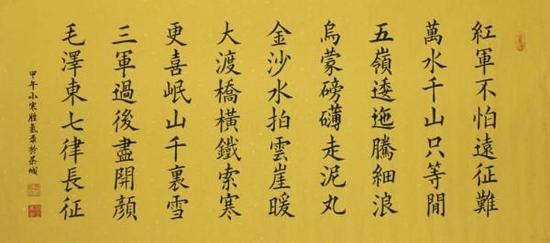 紅軍不怕遠征難
萬水千山只等閒
五嶺逶迤騰細浪
烏蒙磅礴走泥丸
金沙水拍雲崖暖
大渡橋橫鐵索寒
更喜岷山千裏雪
三軍過後盡開顏
毛澤東七律長征
甲午小寒